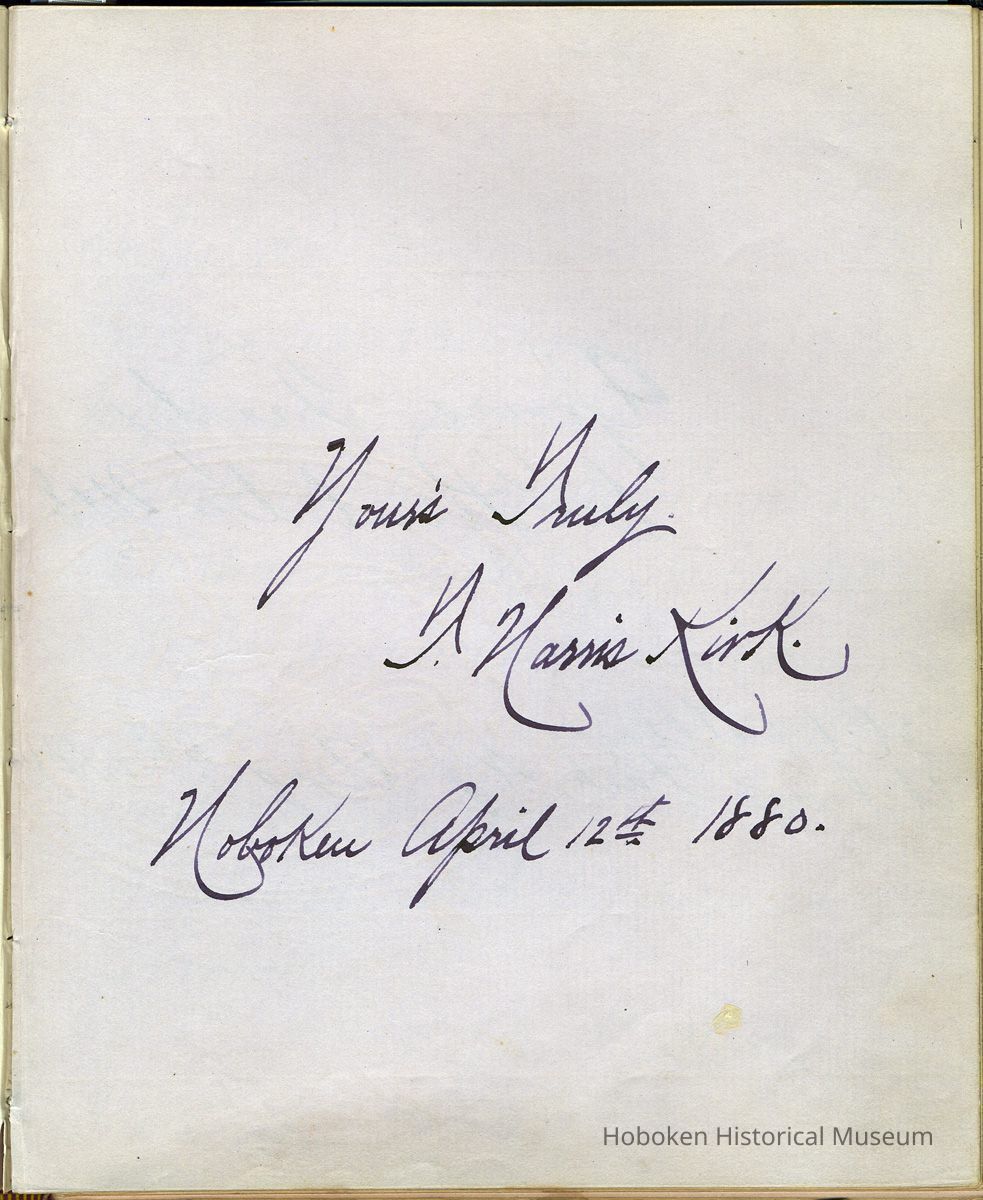 Your's Truly.
T. Harris Kirk.
Hoboken April 12th 1880.
Hoboken Historical Museum